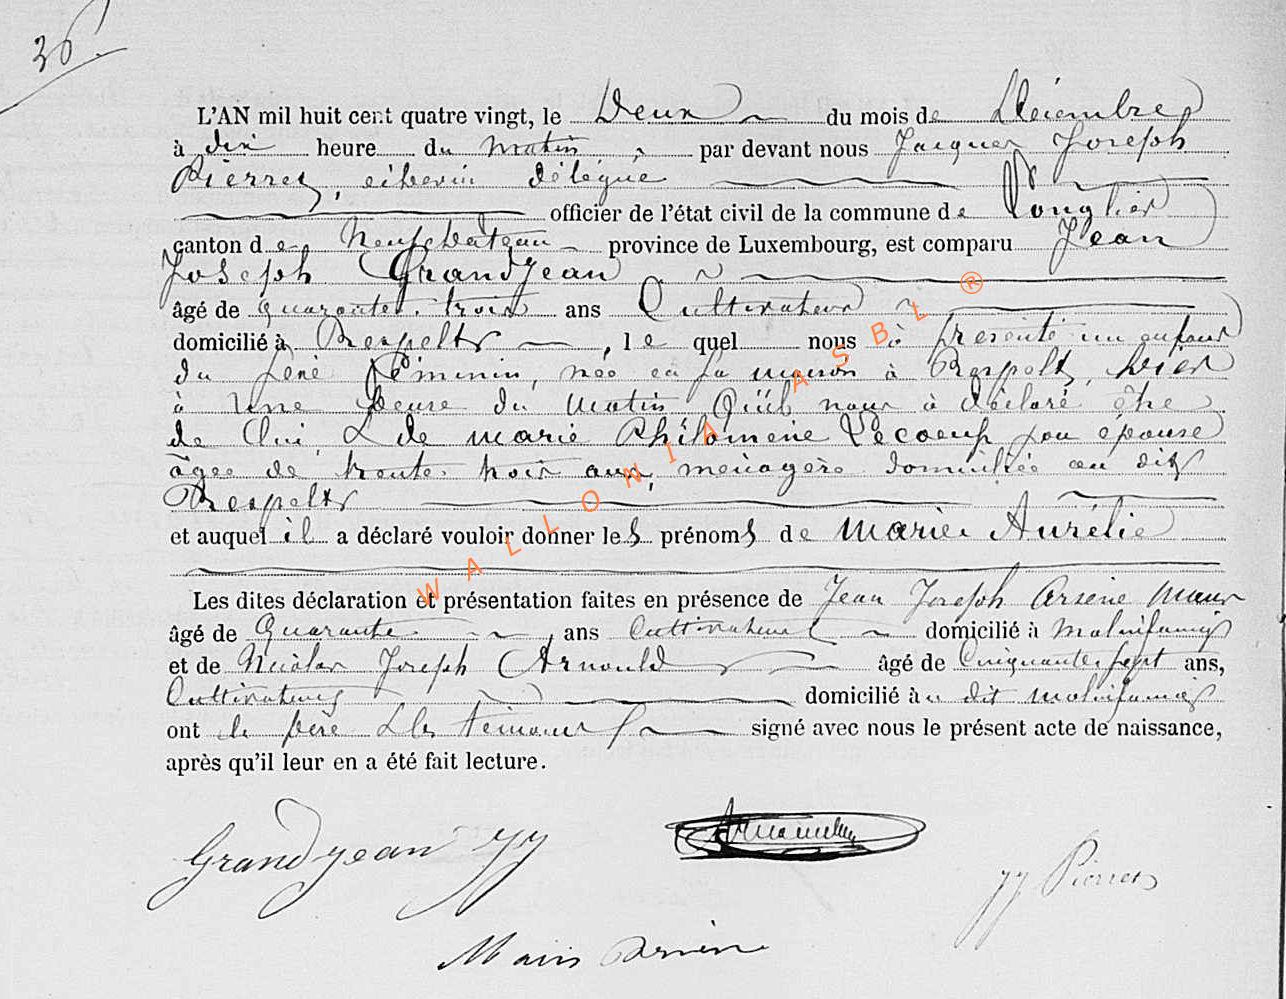 36.
L'AN mil huit cent quatre vingt, le Deux du mois de Décembre
à dix heure du matin, par devant nous Jacques Joseph
Pierret, échevin délégué
officier de l'état civil de la commune de Longlier
canton de Neufchâteau province de Luxembourg, est comparu Jean
Joseph Grandjean
âgé de quarante trois ans Cultivateur
domicilié à Respelt, le quel nous à présenté un enfant
du sexe féminin, née en sa maison à Respelt, hier
à une heure du matin Qu'il nous à déclaré être
de lui & de marie Philomène Lecoeuf son épouse
âgée de trente trois ans, ménagère domiciliée au dit
Respelt
et auquel il a déclaré vouloir donner les prénoms de Marie Aurélie
Les dites déclaration et présentation faites en présence de Jean Joseph Arsène
âgé de Quarante ans Cultivateur domicilié à Molinfaing
et de Nicolas Joseph Arnould âgé de Cinquante sept ans,
Cultivateur domicilié au dit Molinfaing
ont le père & les témoins signé avec nous le présent acte de naissance,
après qu'il leur en a été fait lecture.
Grandjean JJ
JJ Pierret
Arsène
WALLONIA ASBL ®